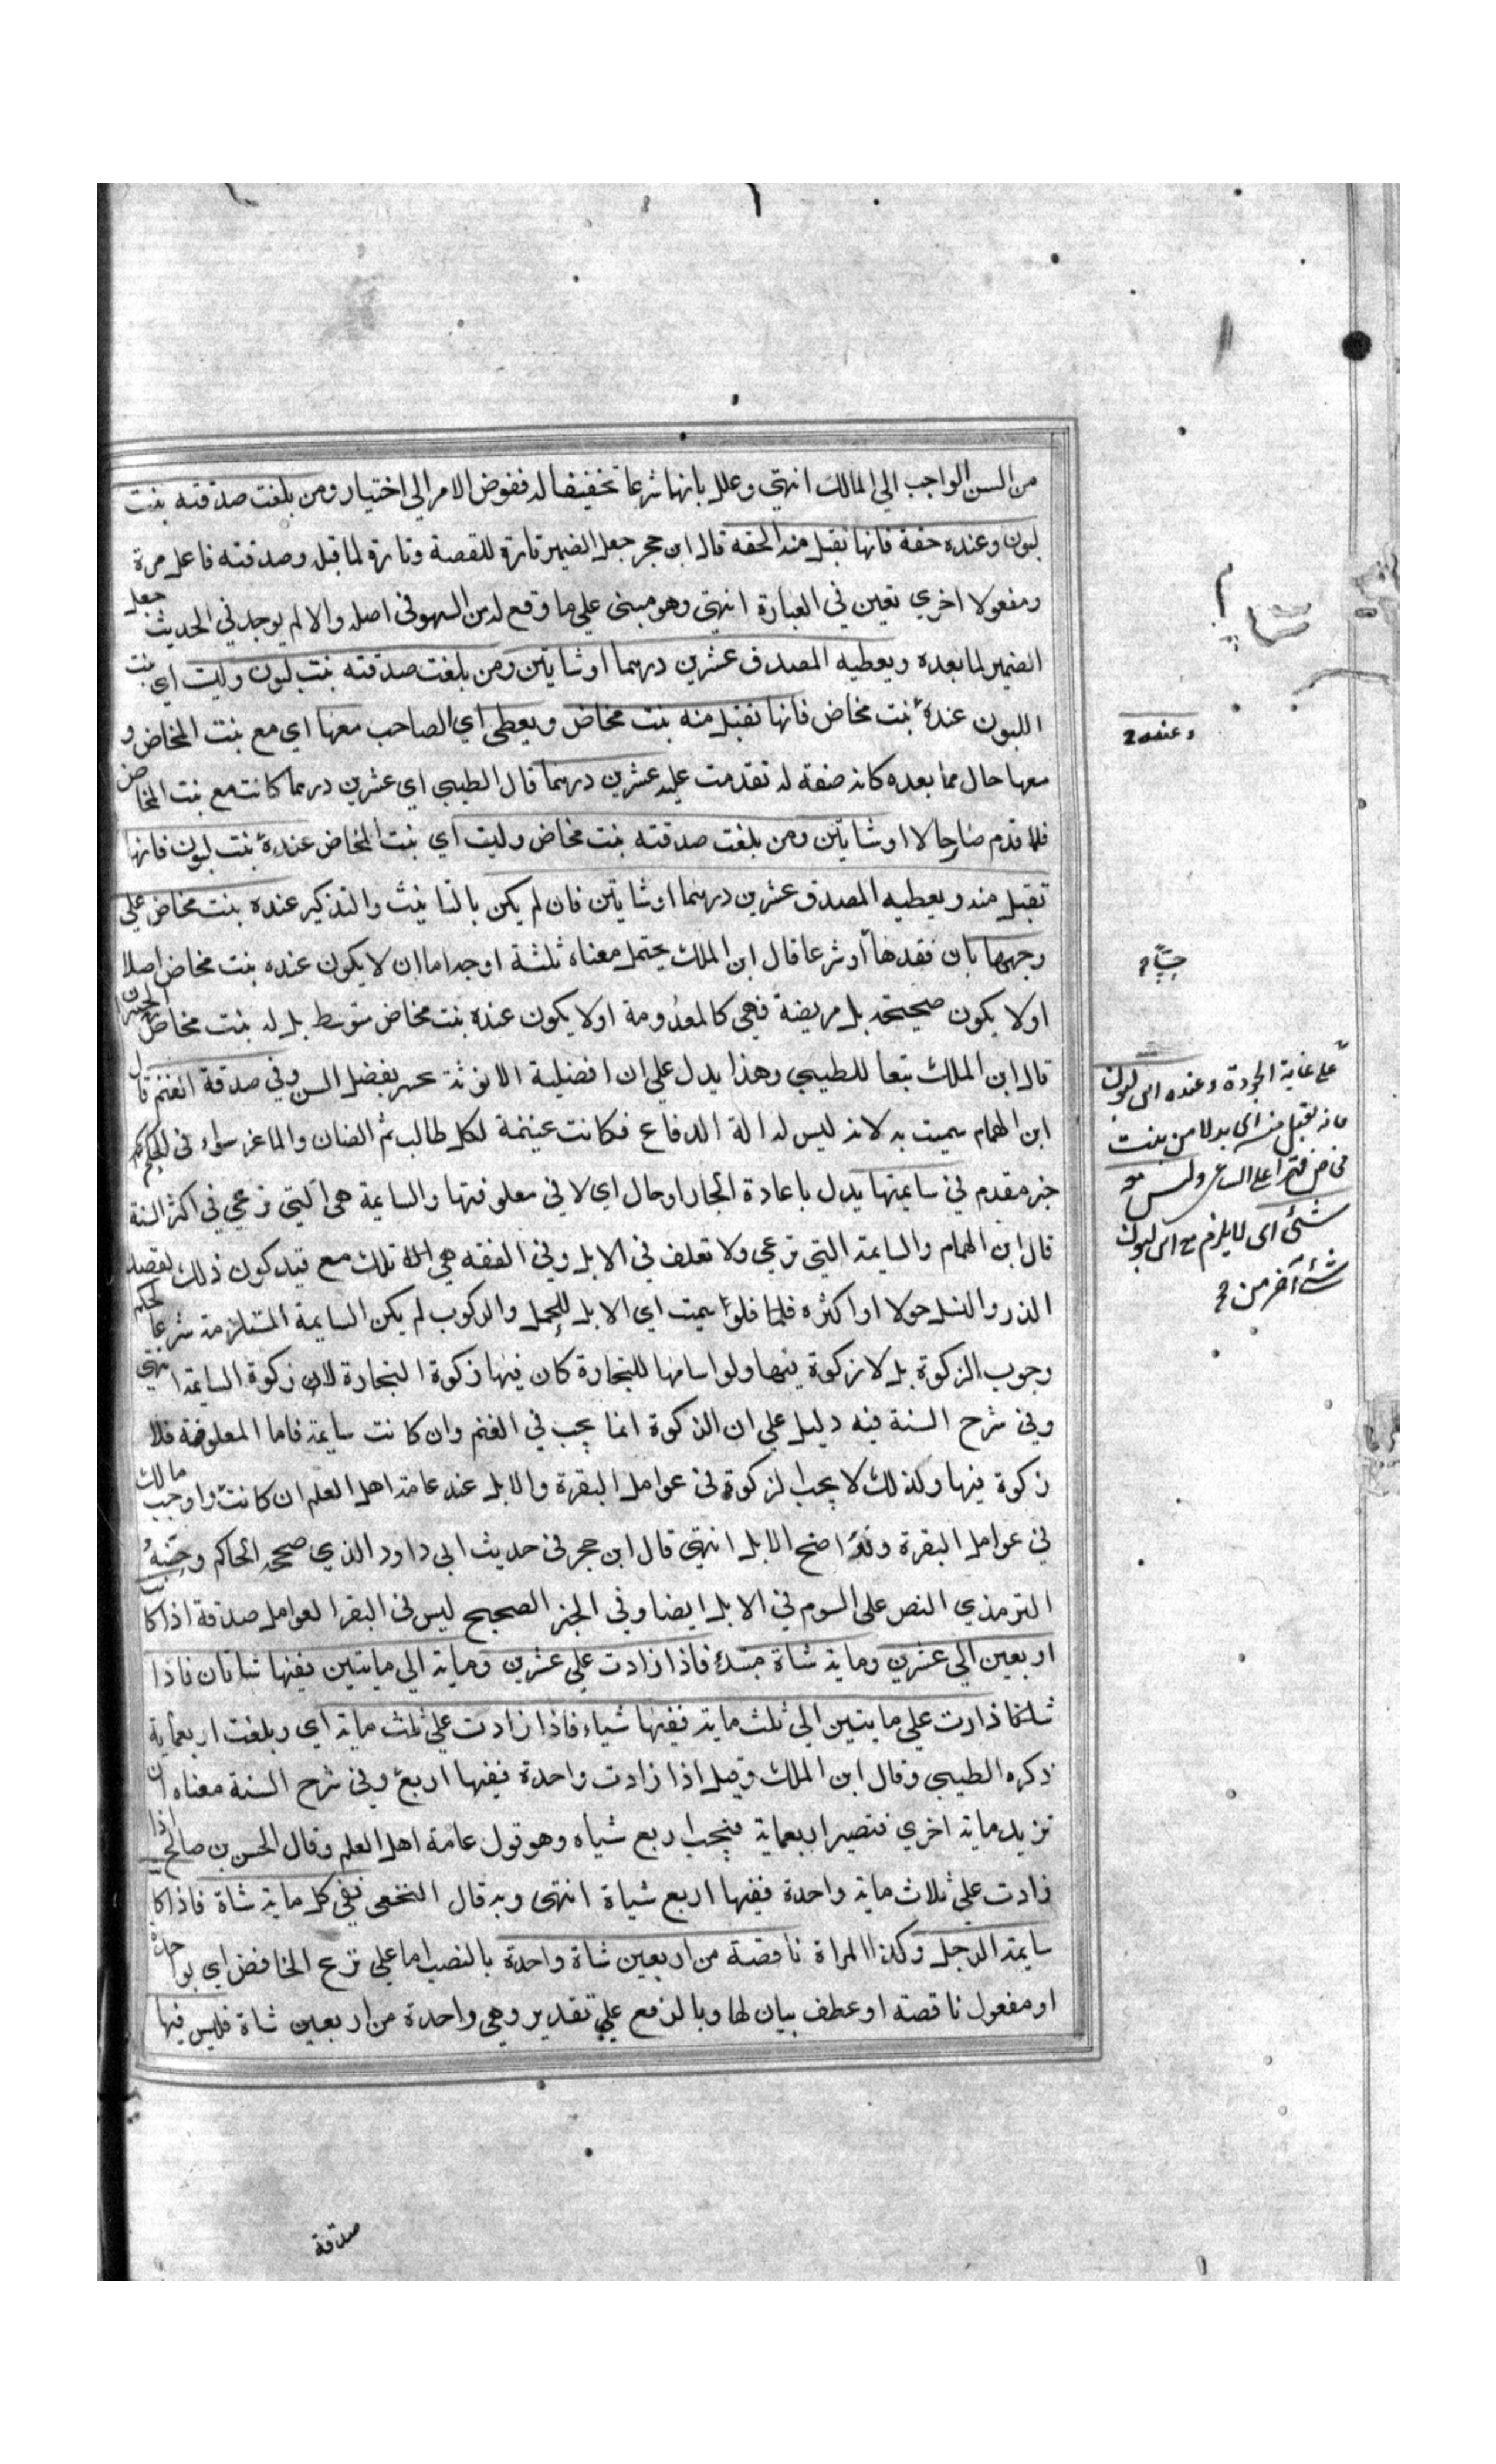 من السن الواجب الي المالك انتهي وعلل بانها شرعا تخفيفا له ففوض الامر الي اختيار ومن بلغت صدقته بنت
لبون وعنده حقة فانها تقبل منه الحقه قال ابن حجر جعل الضمير تارة للقصة وتارة لما قبله وصدقته فاعل مرة
ومفعولا اخري تعين في العبارة انتهي وهو مبني علي ما وقع له من السهو في اصله والا لم يوجد في الحديث جعل
الضمير لما بعده ويعطيه المصدق عشرين درهما او شاتين ومن بلغت صدقته بنت لبون وليت اي بنت
اللبون عنده بنت مخاض فانها تقبل منه بنت مخاض ويعطي اي الصاحب معها اي مع بنت المخاض و
معها حال مما بعده كانه صفة له تقدمت عليه عشرين درهما قال الطيبي اي عشرين درهما كانت مع بنت المخاض
فلما قدم صار حالا او شاتين ومن بلغت صدقته بنت مخاض وليت اي بنت المخاض عنده بنت لبون فانها
تقبل منه ويعطيه المصدق عشرين درهما او شاتين فان لم يكن بالتانيث والتذكير عنده بنت مخاض علي
وجهها بان فقدها او شرعا قال ابن الملك يحتمل معناه ثلثة اوجه اما ان لا يكون عنده بنت مخاض اصلا
اولا يكون صحيحة بل مريضة فهي كالمعدومة اولا يكون عنده بنت مخاض متوسط بل له بنت مخاض
قال ابن الملك تبعا للطيبي وهذا يدل علي ان افضلية الانوثة تجبر بفضل السن وفي صدقة الغنم قال
ابن الهمام سميت به لانه ليس له الة الدفاع فكانت غنيمة لكل طالب ثم الضان والماعز سواء في الحكم
خبر مقدم في سايمتها بدل باعادة الجار او حال اي لا في معلوفتها والسايمة هي التي ترعي في اكثر السنة
قال ابن الهمام والسايمة التي ترعي ولا تعلف في الابل وفي الفقه هي تلك مع قيد كون ذلك لقصد
الدر والنسل حولا او اكثره فلو اسيمت اي الابل للحمل والركوب لم يكن السايمة المستلزمة شرعا لحكم
وجوب الزكوة بل لا زكوة فيها ولو اسامها للتجارة كان فيها زكوة التجارة لان زكوة السايمة انتهي
وفي شرح السنة فيه دليل علي ان الزكوة انما يجب في الغنم وان كانت سايمة فاما المعلوفة فلا
زكوة فيها ولذلك لا يجب الزكوة في عوامل البقرة والابل عند عامة اهل العلم ان كانت واوجب مالك
في عوامل البقرة ونواضح الابل انتهي قال ابن حجر في حديث ابي داود الذي صححه الحاكم وحسنه
الترمذي النص علي السوم في الابل ايضا وفي الخبر الصحيح ليس في البقر العوامل صدقة اذا كانت
اربعين الي عشرين وماية شاة مبتدا فاذا زادت علي عشرين وماية الي مايتين ففيها شاتان فاذا
زادت علي مايتين الي ثلث ماية ففيها شياه فاذا زادت علي ثلث ماية اي وبلغت اربعماية
ذكره الطيبي وقال ابن الملك وقيل اذا زادت واحدة ففيها اربع وفي شرح السنة معناه ان
تزيد ماية اخري فتصير اربعماية فيجب اربع شياه وهو قول عامة اهل العلم وقال الحسن بن صالح اذا
زادت علي ثلاث ماية واحدة ففيها اربع شياة انتهي وبه قال النخعي ففي كل ماية شاة فاذا كا
سايمة الرجل وكذا المراة ناقصة من اربعين شاة واحدة بالنصب اما علي نزع الخافض اي بواحدة
او مفعول ناقصة او عطف بيان لها وبالرفع علي تقدير وهي واحدة من اربعين شاة فليس فيها
وعنده
علي غاية الجودة وعنده ابن لبون
فانه يقبل منه اي بدلا من بنت
مخاض قهرا علي الساعي وليس معه
شئ اي لا يلزم مع ابن لبون
شئ آخر من
صدقة